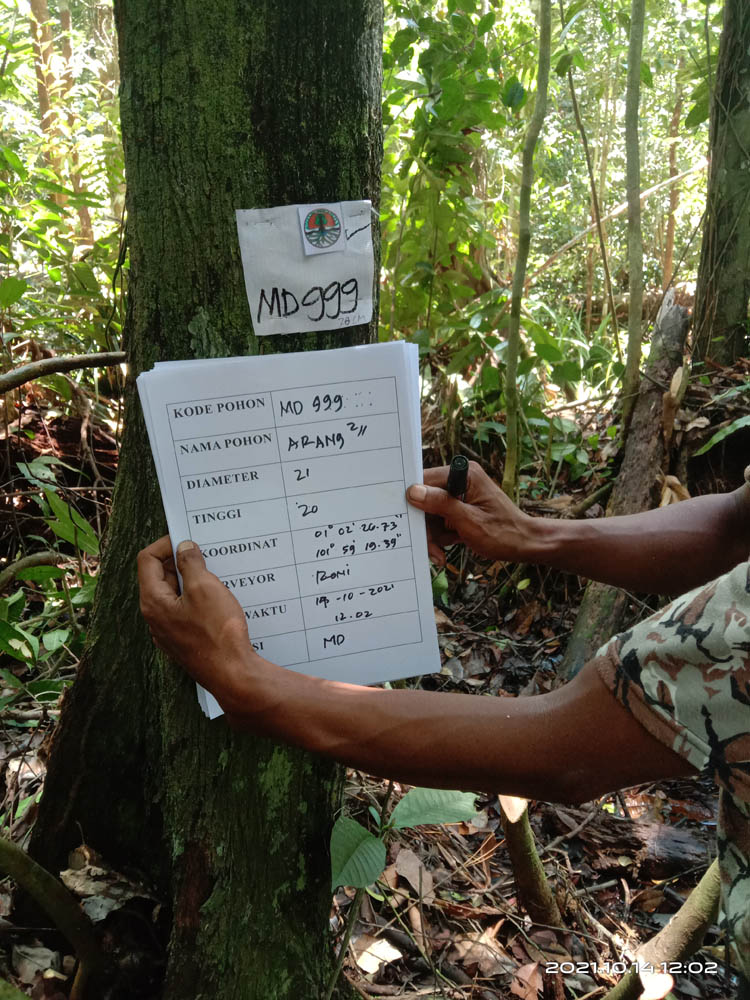 MD 999
78 CM
KODE POHON MD 999
NAMA POHON ARANG²//
DIAMETER 21
TINGGI 20
KOORDINAT 01° 02' 26.73"
101° 59' 19.39"
RVEYOR Romi
WAKTU 14-10-2021
12.02
SI MD
2021.10.14 12:02